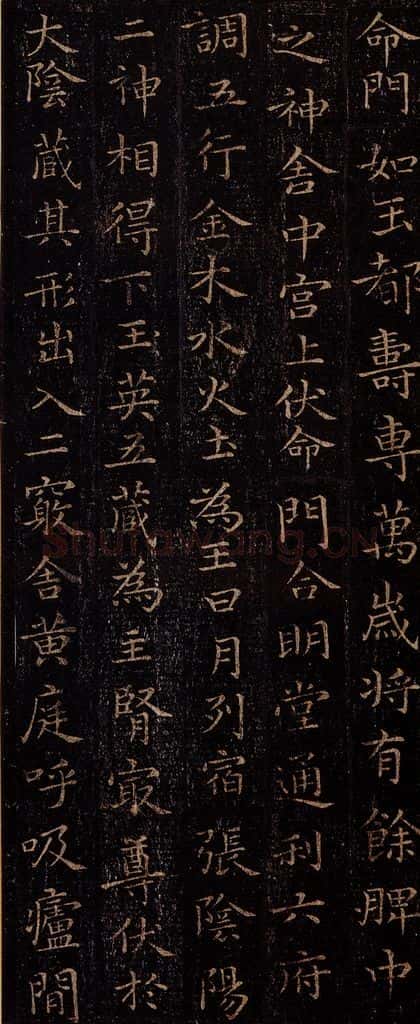 命門如玉都壽專萬歲将有餘脾中
之神舍中宫上伏命門合明堂通利六府
調五行金木水火土為王日月列宿張陰陽
二神相得下玉英五藏為主腎寂尊伏於
大陰藏其形出入二竅舍黄庭呼吸廬間
Shufawang.CN